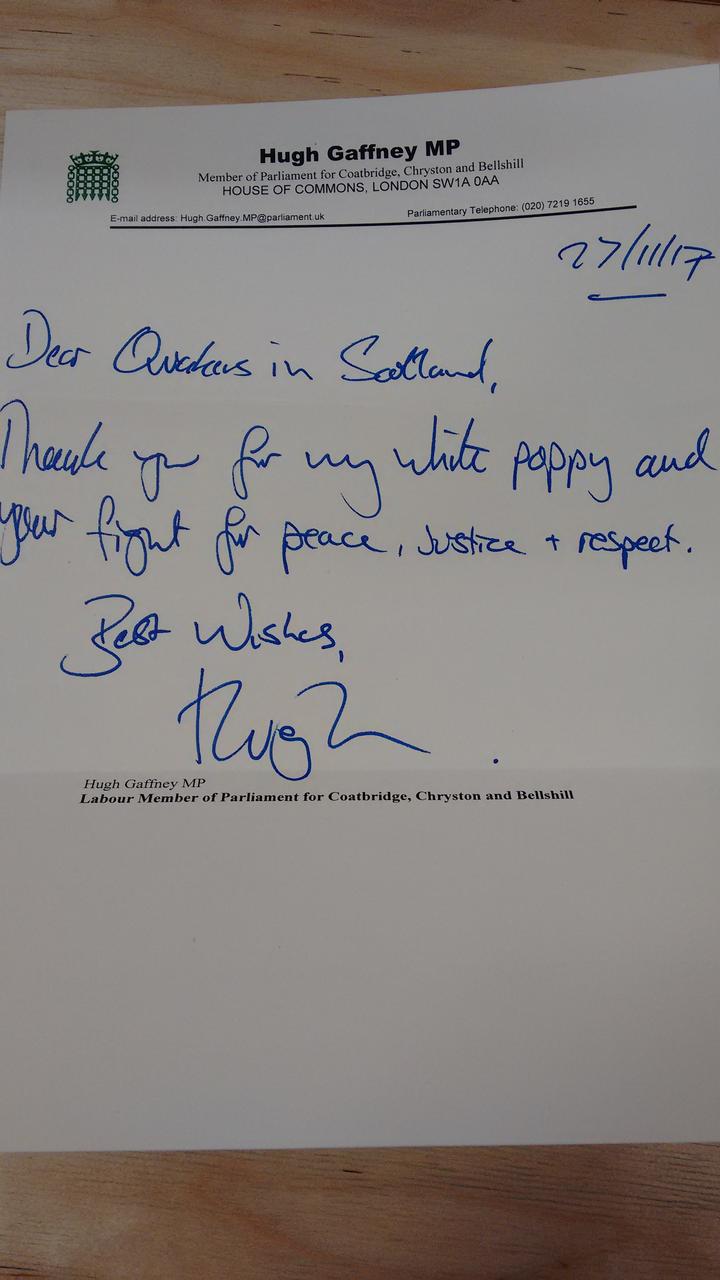 Hugh Gaffney MP
Member of Parliament for Coatbridge, Chryston and Bellshill
HOUSE OF COMMONS, LONDON SW1A 0AA
E-mail address: Hugh.Gaffney.MP@parliament.uk Parliamentary Telephone: (020) 7219 1655
27/11/17
Dear Quakers in Scotland,
Thank you for my white poppy and
your fight for peace, Justice + respect.
Best Wishes,
Hugh
Hugh Gaffney MP
Labour Member of Parliament for Coatbridge, Chryston and Bellshill